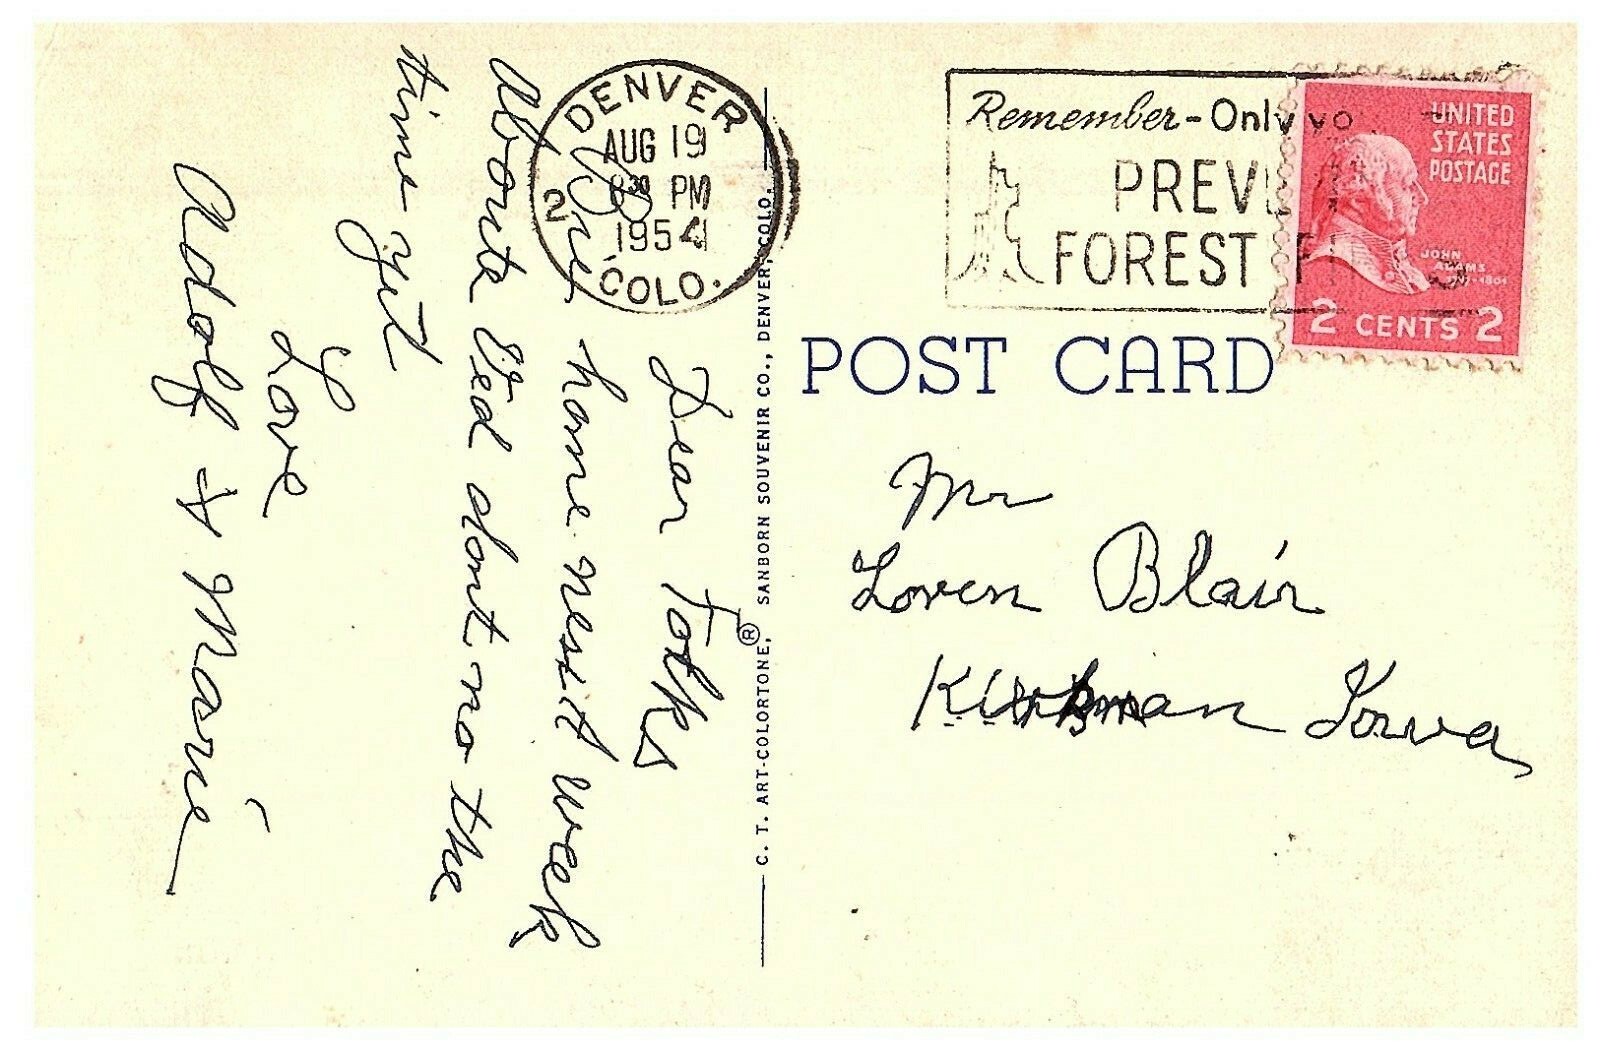 DENVER
AUG 19
8 30 PM
2
1954
COLO.
Remember - Only yo
PREV
FOREST FI
UNITED
STATES
POSTAGE
JOHN
ADAMS
2 CENTS 2
POST CARD
Dear Folks
home next week
Aboute Wed dont no the
time yet
Love
Adolf & Marie
C. T. ART-COLORTONE,® SANBORN SOUVENIR CO., DENVER, COLO.
Mr
Loren Blair
Kirkman Iowa